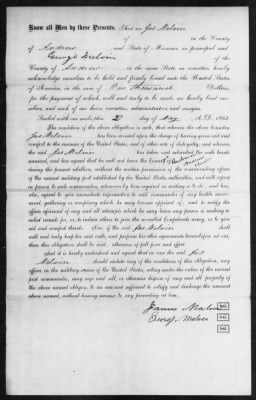 Know all Men by these Presents, That we Jas Melvin
of in the County
of Andrew and State of Missouri, as principal and
George Melvin
County of Andrew in the same State, as sureties, hereby
acknowledge ourselves to be held and firmly bound unto the United States
of America, in the sum of One Thousand Dollars,
for the payment of which, well and truly to be made, we hereby bind our-
selves, and each of our heirs, executors, administrators and assigns.
Sealed with our seals this 21 day of May A. D. 1862.
The condition of the above obligation is such, that whereas the above bounden
Jas Melvin has been arrested upon the charge of having given aid and
comfort to the enemies of the United States, and of other acts of disloyalty, and whereas
the said Jas Melvin has taken and subscribed the oath hereto
annexed, and has agreed that he will not leave the County of Andrew
during the present rebellion, without the written permission of the commanding officer
of the nearest military post established by the United States authorities, and will report
in person to such commander, whenever by him required in writing so to do; and has,
also, agreed to give immediate information to said commander of any hostile move-
ment, gathering or conspiracy which he may become apprised of; and to notify the
officer aforesaid of any and all attempts which he may learn any person is making to
enlist recruits for, or to induce others to join the so-called Confederate army, or to give
aid and comfort thereto. Now, if the said Jas Melvin shall
well and truly keep his said oath, and perform his other agreements hereinbefore set out,
then this obligation shall be void; otherwise of full force and effect.
And it is hereby understood and agreed that in case the said Jas
Melvin should violate any of the conditions of this obligation, any
officer in the military service of the United States, acting under the orders of the nearest
post commander, may seize and sell, or otherwise dispose of any and all property of
the above named obligors, to an amount sufficient to satisfy and discharge the amount
above named, without having recourse to any proceeding at law.
James Melvin Seal
George Melvin Seal